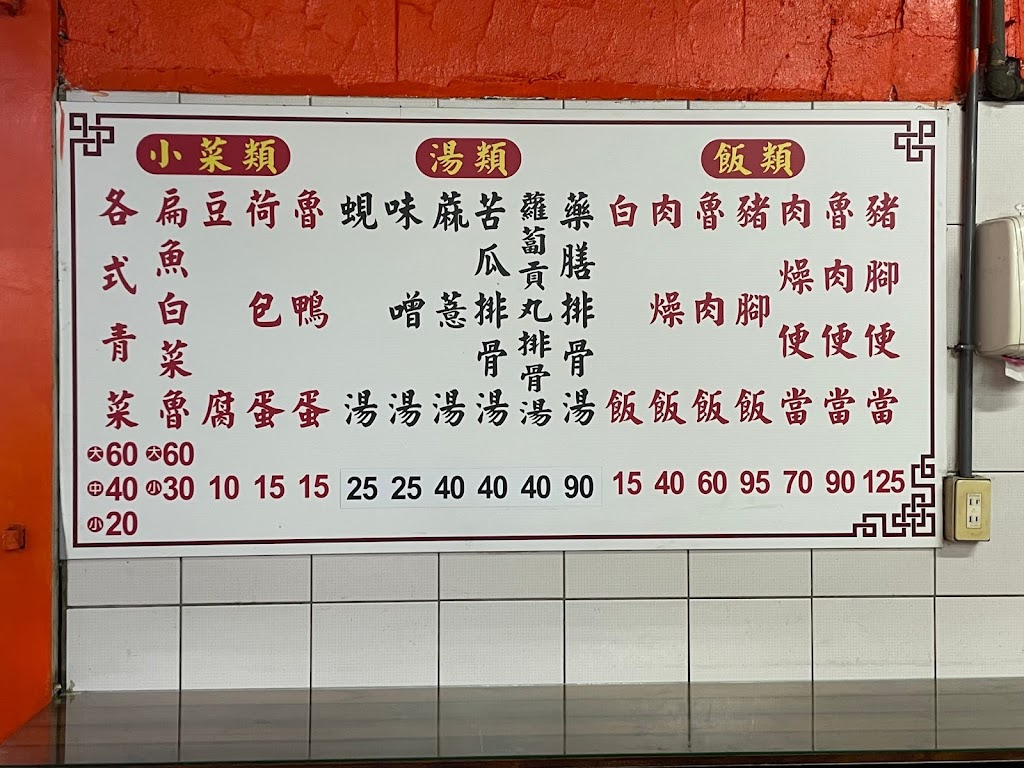 飯類
豬腳便當
125
魯肉便當
90
肉燥便當
70
豬腳飯
95
魯肉飯
60
肉燥飯
40
白飯
15
湯類
藥膳排骨湯
90
蘿蔔貢丸排骨湯
40
苦瓜排骨湯
40
蔴薏湯
40
味噌湯
25
蜆湯
25
小菜類
魯鴨蛋
15
荷包蛋
15
豆腐
10
扁魚白菜魯
大60
小30
各式青菜
大60
中40
小20